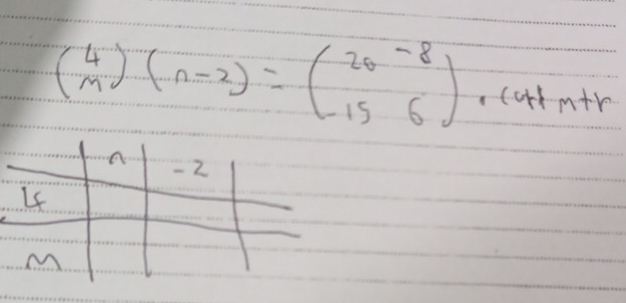 (4 m) (n -2) = (20 -8 -15 6) .
n -2
4
m